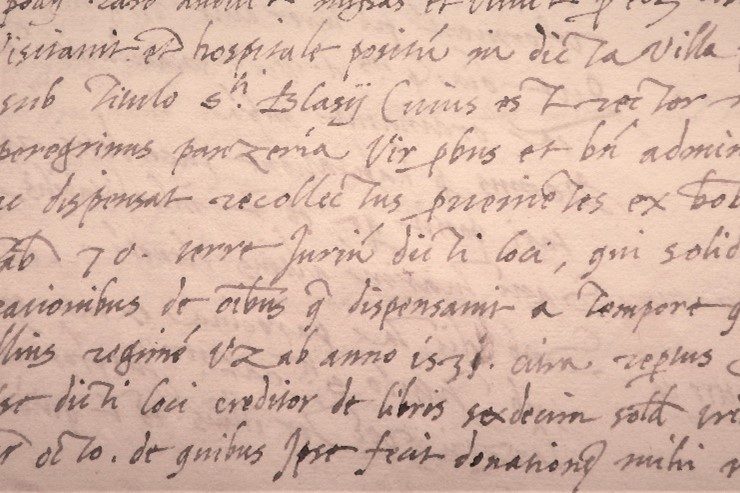 missas et
visitavit et hospitale positũ in dicta villa
sub titulo Sti. Blasij Cuius est rector
peregrinus panzeria Vir pbus et bñ admin
dispensat recollectus ex
70. terre Juriũ dicti loci, qui solid
rationibus de oibus q dispensavit a tempore
illius regimẽ Vz ab anno 1531. citra repertus
dicti loci creditor de libris sexdecim sold
octo. de quibus Ipse fecit donationẽ mihi